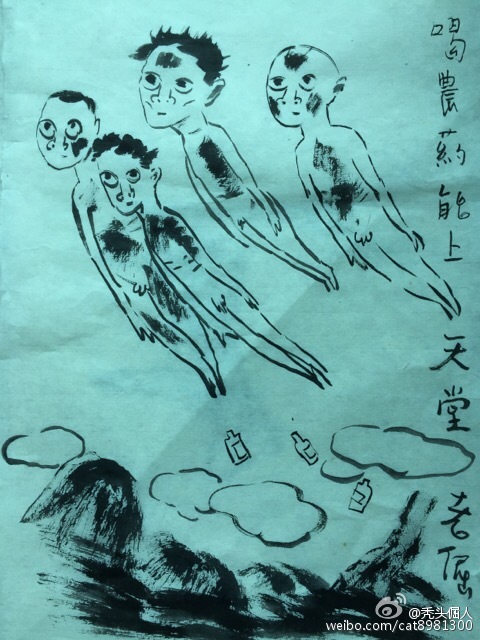 喝農葯能上天堂
老倔
@秃头倔人
weibo.com/cat8981300